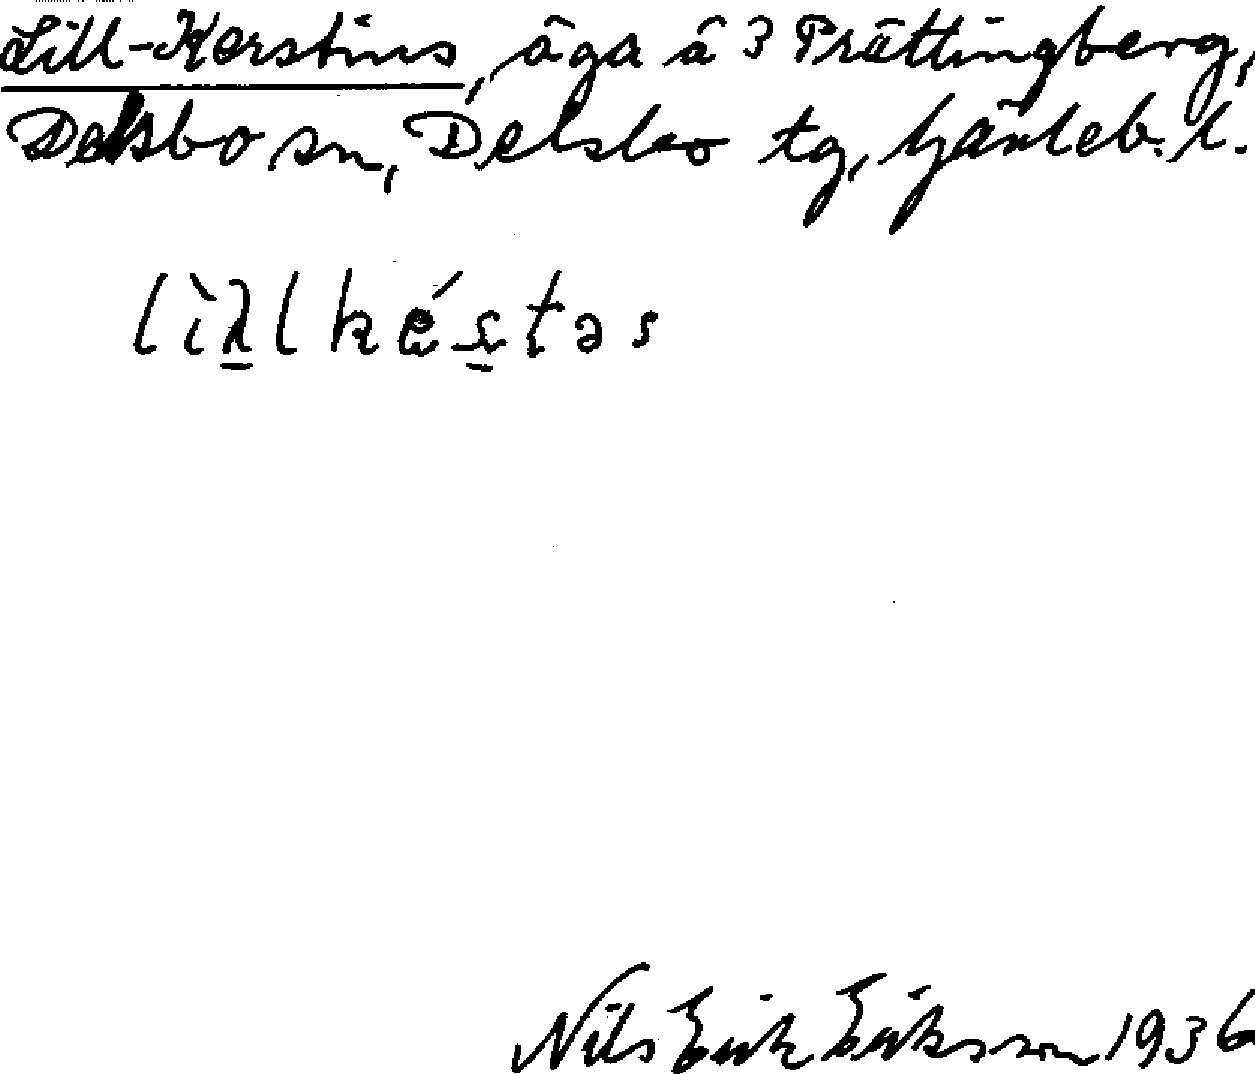 Lill-Kerstins, äga å 3 Prästingberg,
Delsbo sn, Delsbo tg, Gävleb. l.
Nils Erik Eriksson 1936